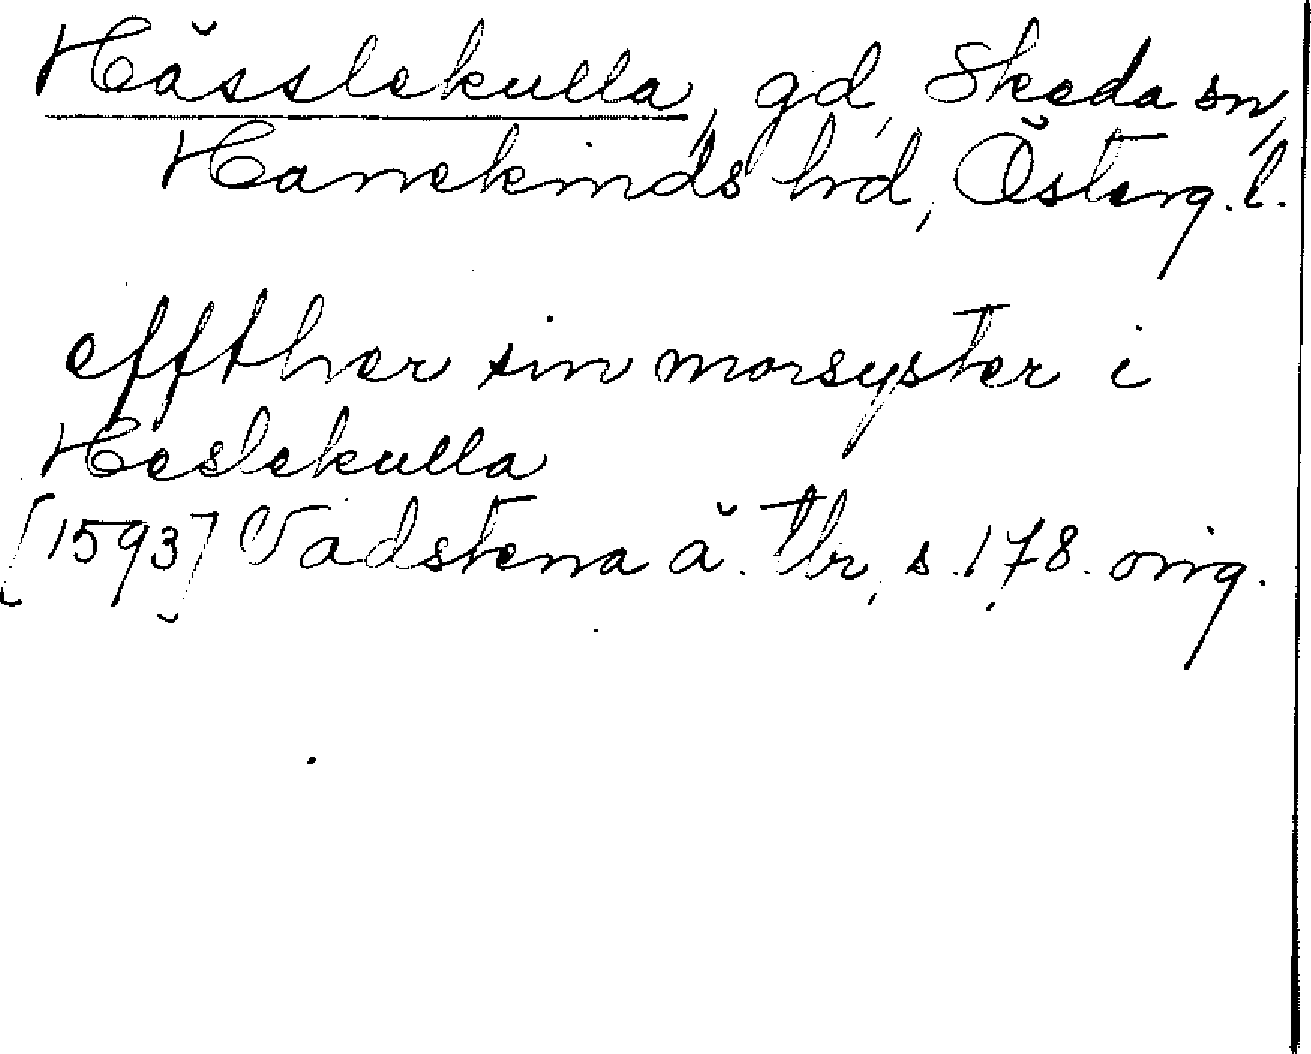 Hässlekulla, gd, Skeda sn,
Hanekinds hrd, Österg. l.
effther sin morsyster i
Heslekulla
[1593] Vadstena ä. tbr, s. 178. orig.